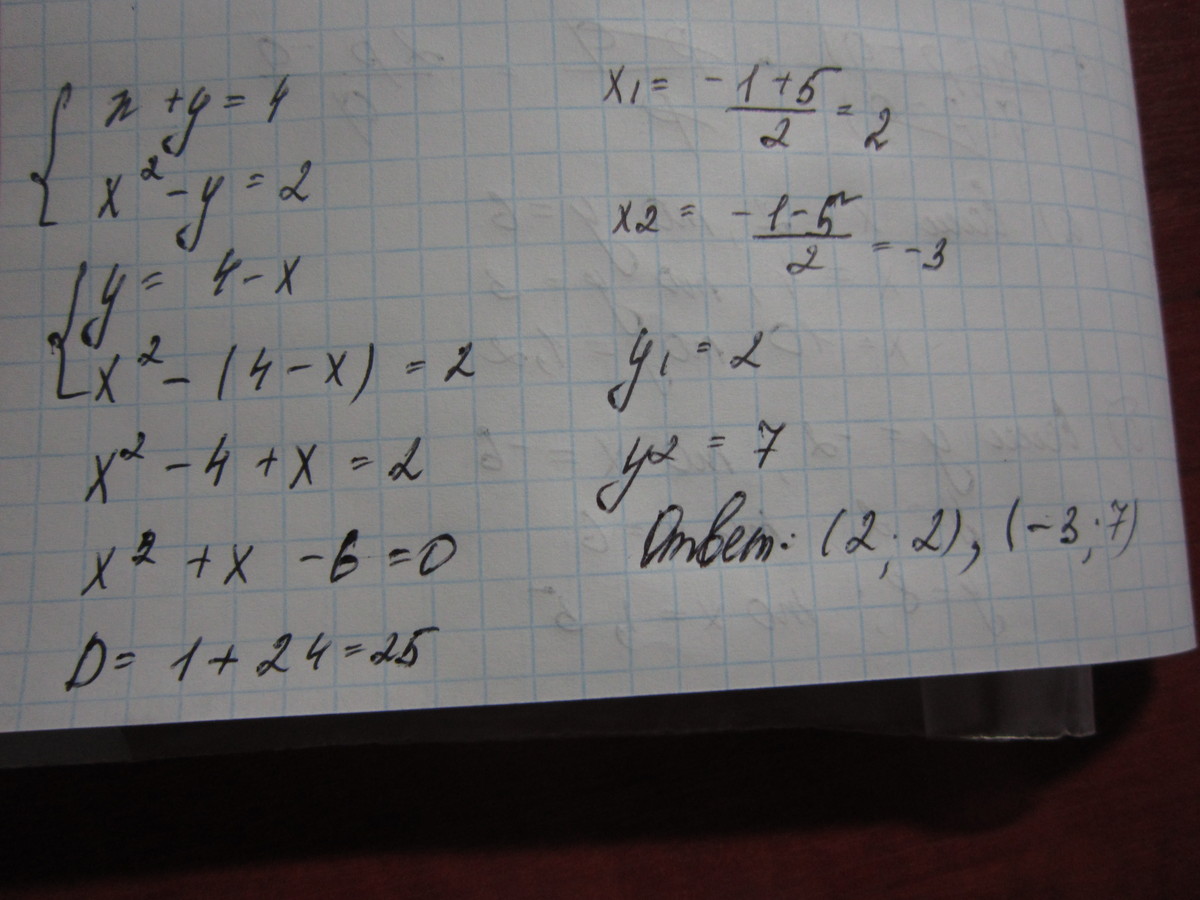 x + y = 4
x² - y = 2
y = 4 - x
x² - (4 - x) = 2
x² - 4 + x = 2
x² + x - 6 = 0
D = 1 + 24 = 25
x1 = (-1+5)/2 = 2
x2 = (-1-5)/2 = -3
y1 = 2
y2 = 7
Ответ: (2; 2), (-3; 7)